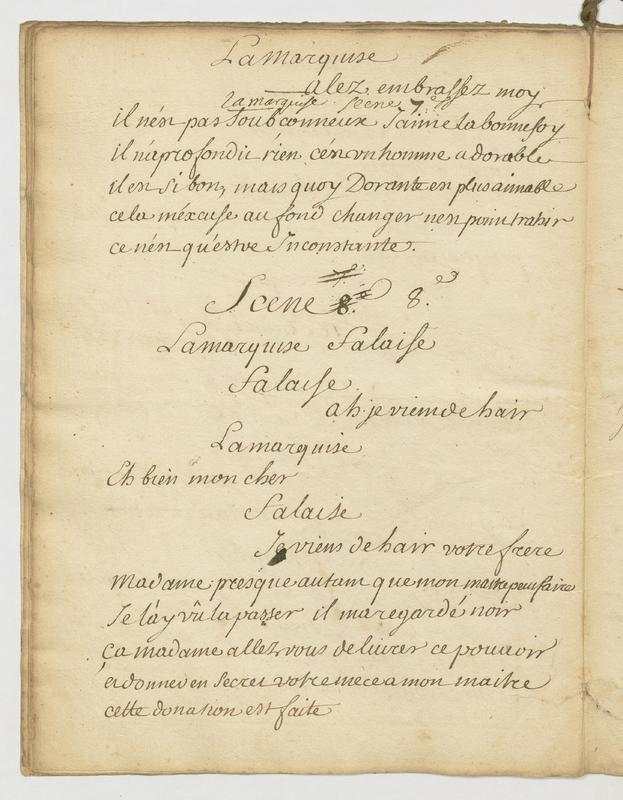 La marquise
alez, embrassez moy
La marquise. Scene 7.e
il n'és pas soubconneux J'aime la bonne foy
il n'aprofondit rien cén un homme adorable
il en si bon, mais quoy Dorante en plus aimable
cela méxcuse au fond changer nen point trahir
ce nén qu'estre Inconstante.
Scene 8.e 8.e
La marquise Falaise
Falaise
ah je viem de hair
La marquise
Eh bien mon cher
Falaise
Je viens de hair votre frere
Madame presque autam que mon maitre peu faire
Je l'ay vû la passer il ma regardé noir
ca madame allez vous delivrer ce pouvoir
et donner en secret votre niece a mon maitre
cette donation est faite